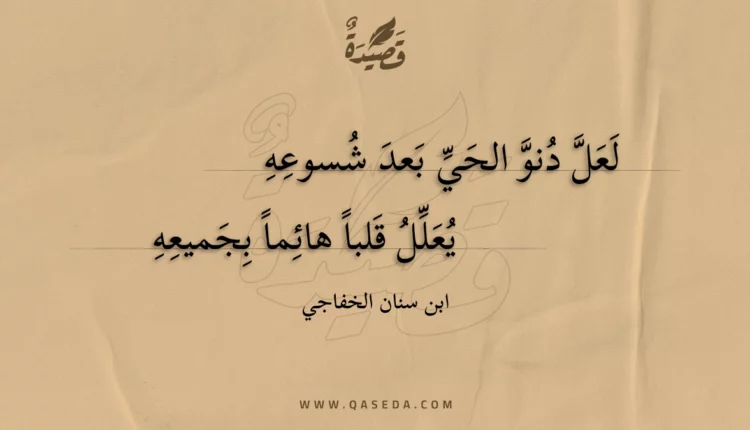 قَصِيدَةٌ
لَعَلَّ دُنوَّ الحَيِّ بَعدَ شُسوعِهِ
يُعَلِّلُ قَلباً هائِماً بِجَميعِهِ
ابن سنان الخفاجي
WWW.QASEDA.COM